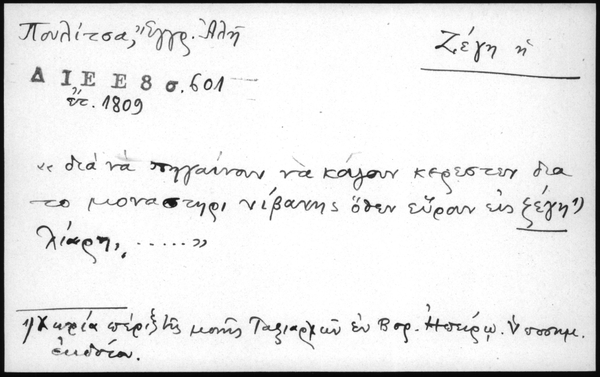 Πουλίτσα, Ἔγγρ. Ἀλῆ
Ζέγη ἡ
Δ Ι Ε Ε 8 σ. 601
ἔτ. 1809
« διὰ νὰ πηγαίνουν νὰ κόψουν κερεστεν δια
το μοναστηρι νίβανης ὅθεν εὕρουν εις ζέγη¹⁾
λιάρη, ..... »
1) Χωρία πέριξ τῆς μονῆς Ταξιαρχῶν ἐν Βορ. Ἠπείρῳ. Ὑποσημ.
ἐκδότου.